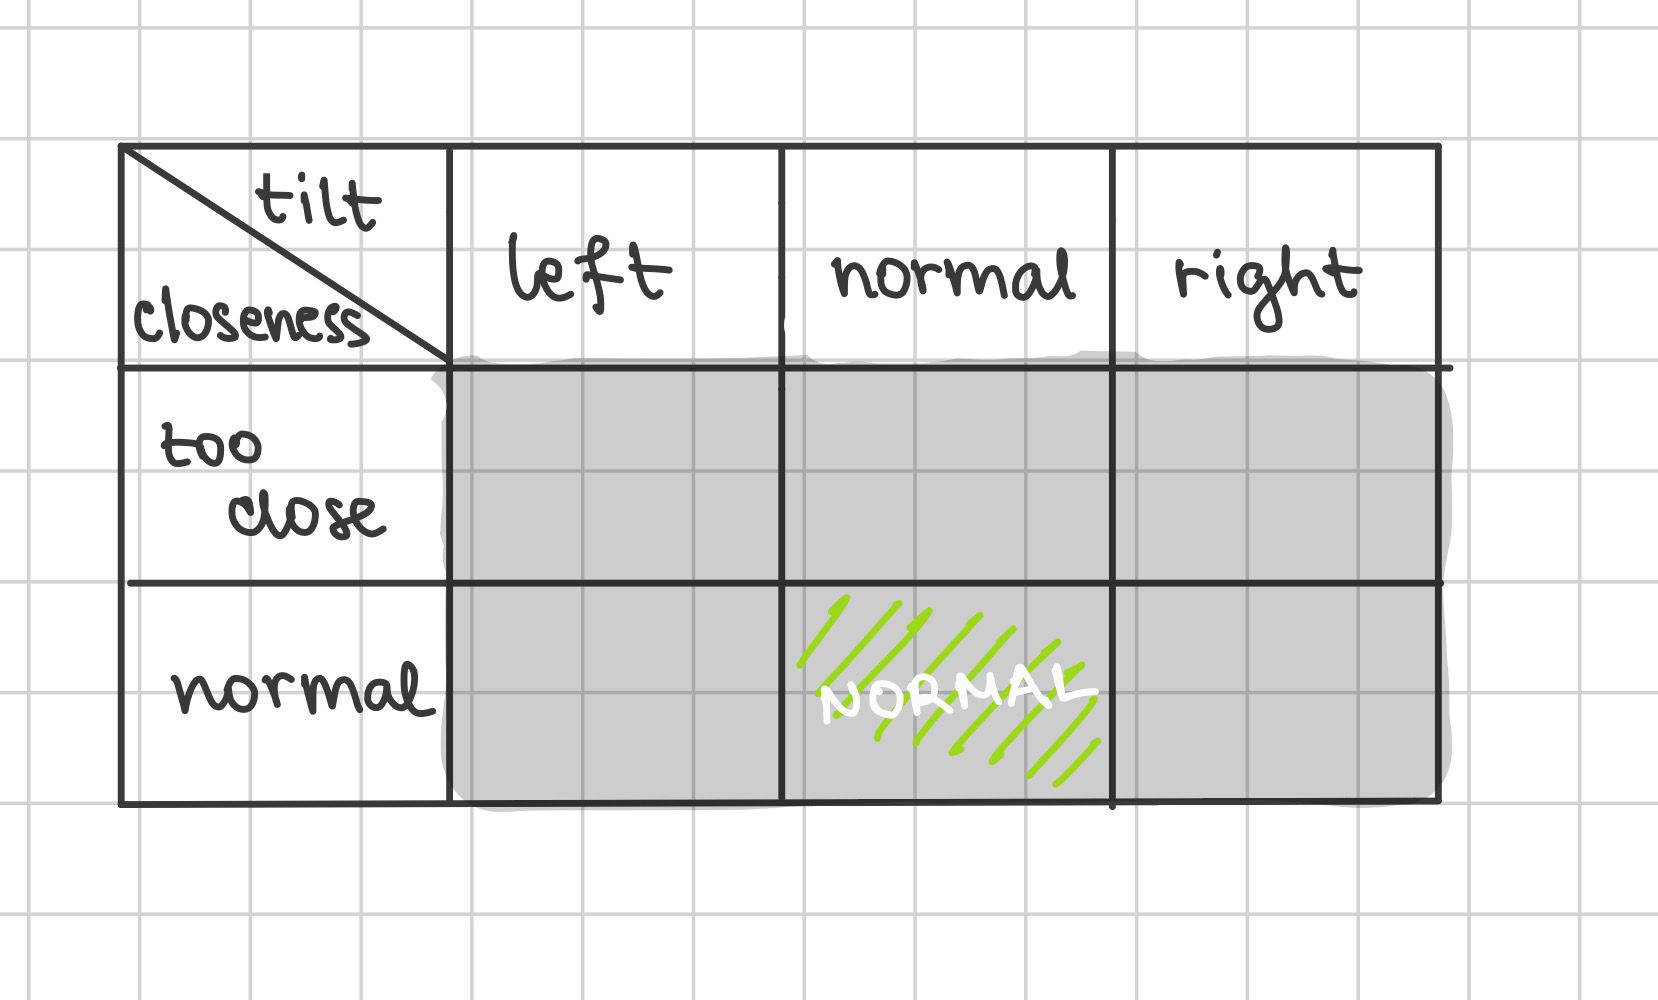 tilt
closeness
left
normal
right
too
close
normal
NORMAL